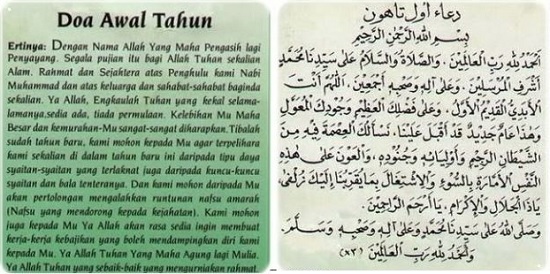 Doa Awal Tahun
Ertinya: Dengan Nama Allah Yang Maha Pengasih lagi
Penyayang. Segala pujian itu bagi Allah Tuhan sekalian
Alam. Rahmat dan Sejahtera atas Penghulu kami Nabi
Muhammad dan atas keluarga dan sahabat-sahabat baginda
sekalian. Ya Allah, Engkaulah Tuhan yang kekal selama-
lamanya,sedia ada, tiada permulaan. Kelebihan Mu Maha
Besar dan kemurahan-Mu sangat-sangat diharapkan.Tibalah
sudah tahun baru, kami mohon kepada Mu agar terpelihara
kami sekalian di dalam tahun baru ini daripada tipu daya
syaitan-syaitan yang terlaknat juga daripada kuncu-kuncu
syaitan dan bala tenteranya. Dan kami mohon daripada Mu
akan pertolongan mengalahkan runtunan nafsu amarah
(Nafsu yang mendorong kepada kejahatan). Kami mohon
juga kepada Mu Ya Allah akan rasa sedia ingin membuat
kerja-kerja kebajikan yang boleh mendampingkan diri kami
kepada Mu. Ya Allah Tuhan Yang Maha Agung lagi Mulia.
Ya Allah Tuhan yang sebaik-baik yang mengurniakan rahmat.
دعاء اول تاهون
بِسْمِ اللهِ الرَّحْمٰنِ الرَّحِيْمِ
اَلْحَمْدُ لِلّٰهِ رَبِّ الْعَالَمِيْنَ. وَالصَّلَاةُ وَالسَّلَامُ عَلَى سَيِّدِنَا مُحَمَّدٍ
أَشْرَفِ الْمُرْسَلِيْنَ. وَعَلَى آلِهِ وَصَحْبِهِ أَجْمَعِيْنَ. اَللّٰهُمَّ أَنْتَ
الْأَبَدِيُّ الْقَدِيْمُ الْأَوَّلُ. وَعَلَى فَضْلِكَ الْعَظِيْمِ وَجُوْدِكَ الْمُعَوَّلُ
وَهٰذَا عَامٌ جَدِيْدٌ قَدْ أَقْبَلَ عَلَيْنَا. نَسْأَلُكَ الْعِصْمَةَ فِيْهِ مِنَ
الشَّيْطَانِ الرَّجِيْمِ وَأَوْلِيَائِهِ وَجُنُوْدِهِ. وَالْعَوْنَ عَلَى هٰذِهِ
النَّفْسِ الْأَمَّارَةِ بِالسُّوْءِ وَالْاِشْتِغَالَ بِمَا يُقَرِّبُنَا إِلَيْكَ زُلْفَى،
يَاذَا الْجَلَالِ وَالْإِكْرَامِ. يَا أَرْحَمَ الرَّاحِمِيْنَ.
وَصَلَّى اللهُ عَلَى سَيِّدِنَا مُحَمَّدٍ وَعَلَى آلِهِ وَصَحْبِهِ وَسَلَّمَ.
وَالْحَمْدُ لِلّٰهِ رَبِّ الْعَالَمِيْنَ (×٣)